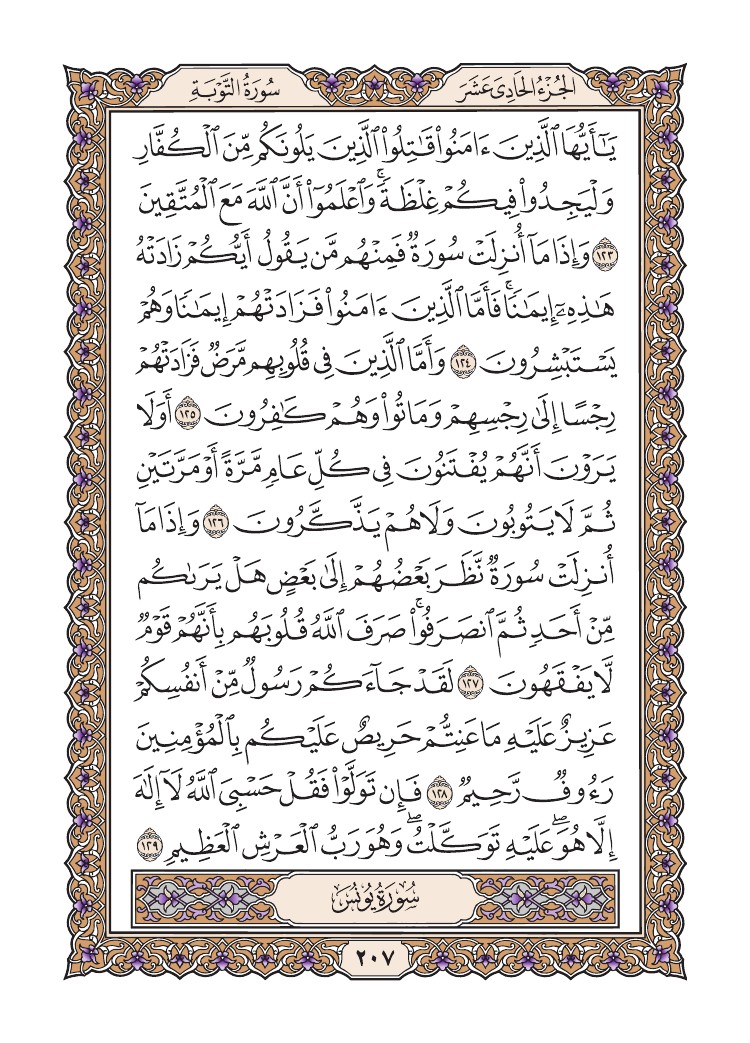 الجُزْءُ الحَادِي عَشَرَ
سُورَةُ التَّوْبَةِ
يَٰٓأَيُّهَا ٱلَّذِينَ ءَامَنُوا۟ قَٰتِلُوا۟ ٱلَّذِينَ يَلُونَكُم مِّنَ ٱلْكُفَّارِ
وَلْيَجِدُوا۟ فِيكُمْ غِلْظَةً ۚ وَٱعْلَمُوٓا۟ أَنَّ ٱللَّهَ مَعَ ٱلْمُتَّقِينَ
١٢٣ وَإِذَا مَآ أُنزِلَتْ سُورَةٌ فَمِنْهُم مَّن يَقُولُ أَيُّكُمْ زَادَتْهُ
هَٰذِهِۦٓ إِيمَٰنًا ۚ فَأَمَّا ٱلَّذِينَ ءَامَنُوا۟ فَزَادَتْهُمْ إِيمَٰنًا وَهُمْ
يَسْتَبْشِرُونَ ١٢٤ وَأَمَّا ٱلَّذِينَ فِى قُلُوبِهِم مَّرَضٌ فَزَادَتْهُمْ
رِجْسًا إِلَىٰ رِجْسِهِمْ وَمَاتُوا۟ وَهُمْ كَٰفِرُونَ ١٢٥ أَوَلَا
يَرَوْنَ أَنَّهُمْ يُفْتَنُونَ فِى كُلِّ عَامٍ مَّرَّةً أَوْ مَرَّتَيْنِ
ثُمَّ لَا يَتُوبُونَ وَلَا هُمْ يَذَّكَّرُونَ ١٢٦ وَإِذَا مَآ
أُنزِلَتْ سُورَةٌ نَّظَرَ بَعْضُهُمْ إِلَىٰ بَعْضٍ هَلْ يَرَىٰكُم
مِّنْ أَحَدٍ ثُمَّ ٱنصَرَفُوا۟ ۚ صَرَفَ ٱللَّهُ قُلُوبَهُم بِأَنَّهُمْ قَوْمٌ
لَّا يَفْقَهُونَ ١٢٧ لَقَدْ جَآءَكُمْ رَسُولٌ مِّنْ أَنفُسِكُمْ
عَزِيزٌ عَلَيْهِ مَا عَنِتُّمْ حَرِيصٌ عَلَيْكُم بِٱلْمُؤْمِنِينَ
رَءُوفٌ رَّحِيمٌ ١٢٨ فَإِن تَوَلَّوْا۟ فَقُلْ حَسْبِىَ ٱللَّهُ لَآ إِلَٰهَ
إِلَّا هُوَ ۖ عَلَيْهِ تَوَكَّلْتُ ۖ وَهُوَ رَبُّ ٱلْعَرْشِ ٱلْعَظِيمِ ١٢٩
سُورَةُ يُونُسَ
٢٠٧